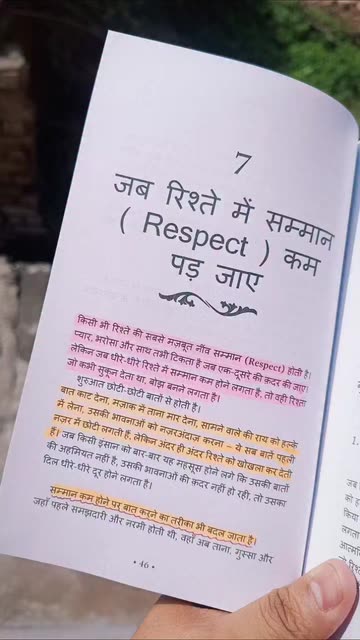 7
जब रिश्ते में सम्मान
( Respect ) कम
पड़ जाए
किसी भी रिश्ते की सबसे मज़बूत नींव सम्मान (Respect) होती है।
प्यार, भरोसा और साथ तभी टिकता है जब एक-दूसरे की क़दर की जाए।
लेकिन जब धीरे-धीरे रिश्ते में सम्मान कम होने लगता है, तो वही रिश्ता
जो कभी सुकून देता था, बोझ बनने लगता है।
शुरुआत छोटी-छोटी बातों से होती है।
बात काट देना, मज़ाक में ताना मार देना, सामने वाले की राय को हल्के
में लेना, उसकी भावनाओं को नज़रअंदाज़ करना – ये सब बातें पहली
नज़र में छोटी लगती हैं, लेकिन अंदर ही अंदर रिश्ते को खोखला कर देती
हैं। जब किसी इंसान को बार-बार यह महसूस होने लगे कि उसकी बातों
की अहमियत नहीं है, उसकी भावनाओं की क़दर नहीं हो रही, तो उसका
दिल धीरे-धीरे दूर होने लगता है।
सम्मान कम होने पर बात करने का तरीका भी बदल जाता है।
जहाँ पहले समझदारी और नरमी होती थी, वहाँ अब ताना, गुस्सा और
• 46 •
1.
जब